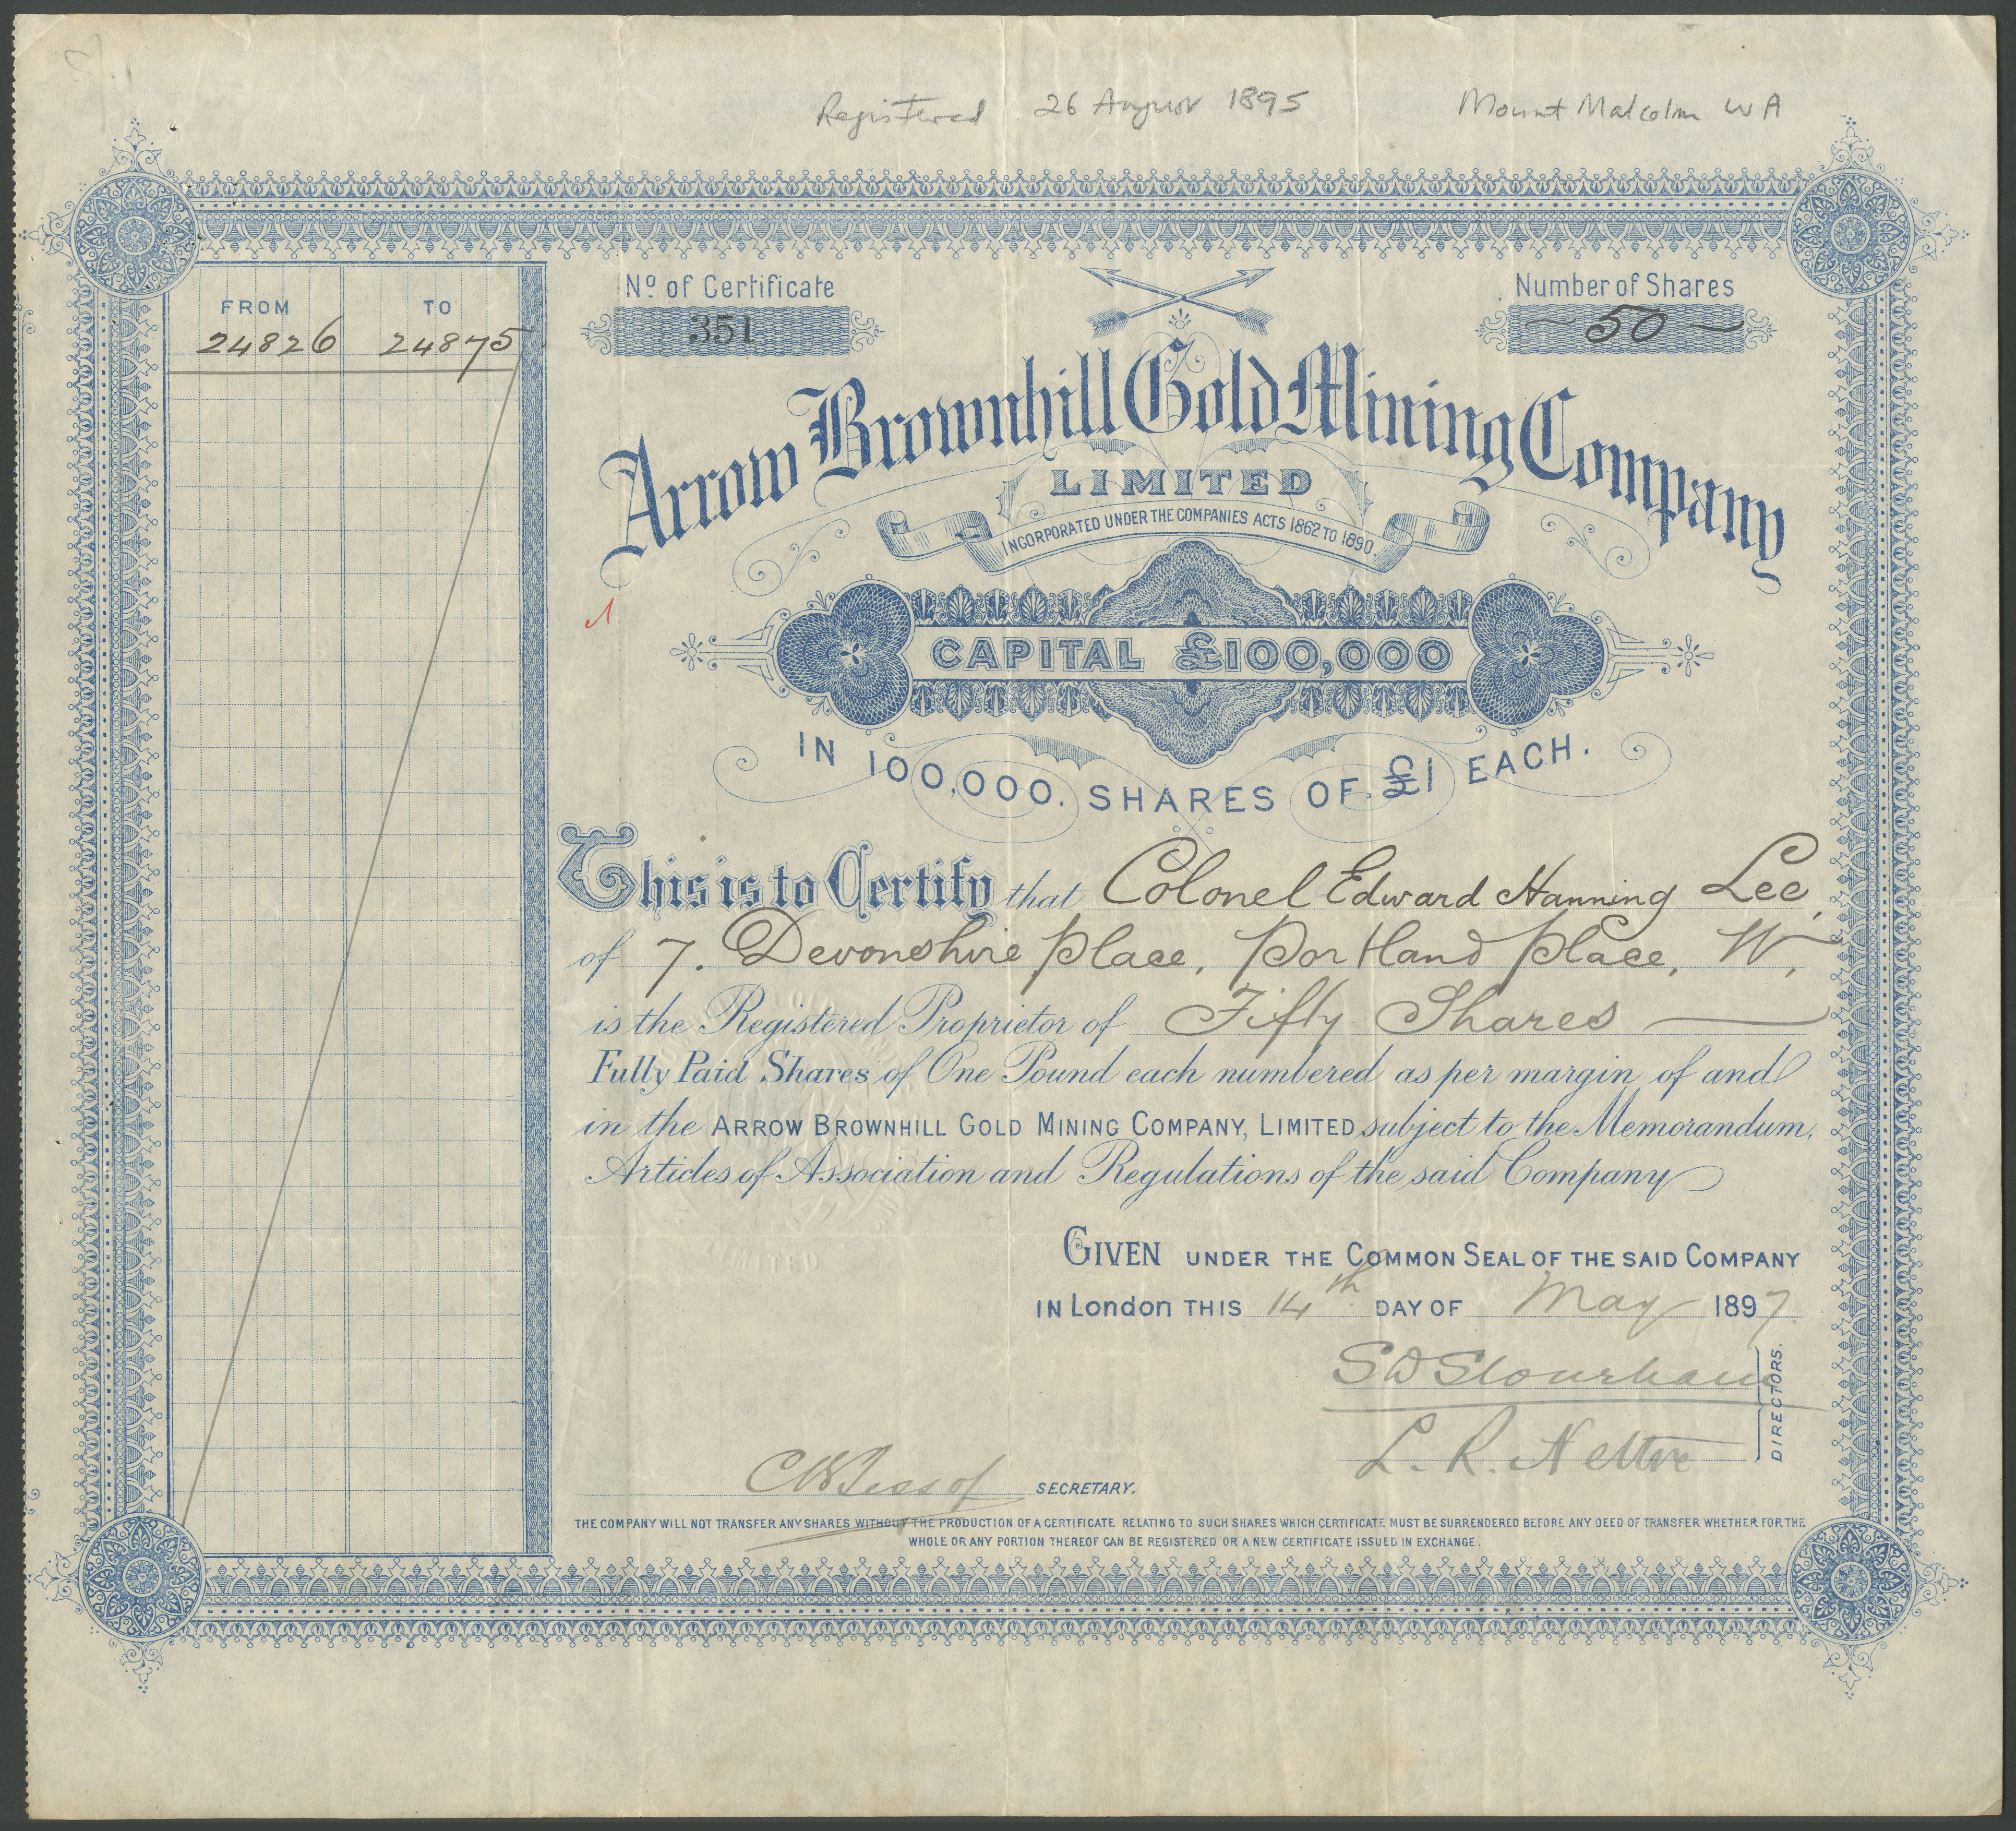 Registered 26 August 1895
Mount Malcolm WA
FROM TO
24826 24875
No of Certificate
351
Number of Shares
50
Arrow Brownhill Gold Mining Company
LIMITED
INCORPORATED UNDER THE COMPANIES ACTS 1862 TO 1890.
CAPITAL £100,000
IN 100,000. SHARES OF £1 EACH.
This is to Certify that Colonel Edward Hanning Lee,
of 7. Devonshire Place, Portland Place, W,
is the Registered Proprietor of Fifty Shares
Fully Paid Shares of One Pound each numbered as per margin of and
in the ARROW BROWNHILL GOLD MINING COMPANY, LIMITED subject to the Memorandum,
Articles of Association and Regulations of the said Company
GIVEN UNDER THE COMMON SEAL OF THE SAID COMPANY
IN London THIS 14th DAY OF May 1897.
DIRECTORS.
L. R.
SECRETARY.
THE COMPANY WILL NOT TRANSFER ANY SHARES WITHOUT THE PRODUCTION OF A CERTIFICATE RELATING TO SUCH SHARES WHICH CERTIFICATE MUST BE SURRENDERED BEFORE ANY DEED OF TRANSFER WHETHER FOR THE
WHOLE OR ANY PORTION THEREOF CAN BE REGISTERED OR A NEW CERTIFICATE ISSUED IN EXCHANGE.
LIMITED